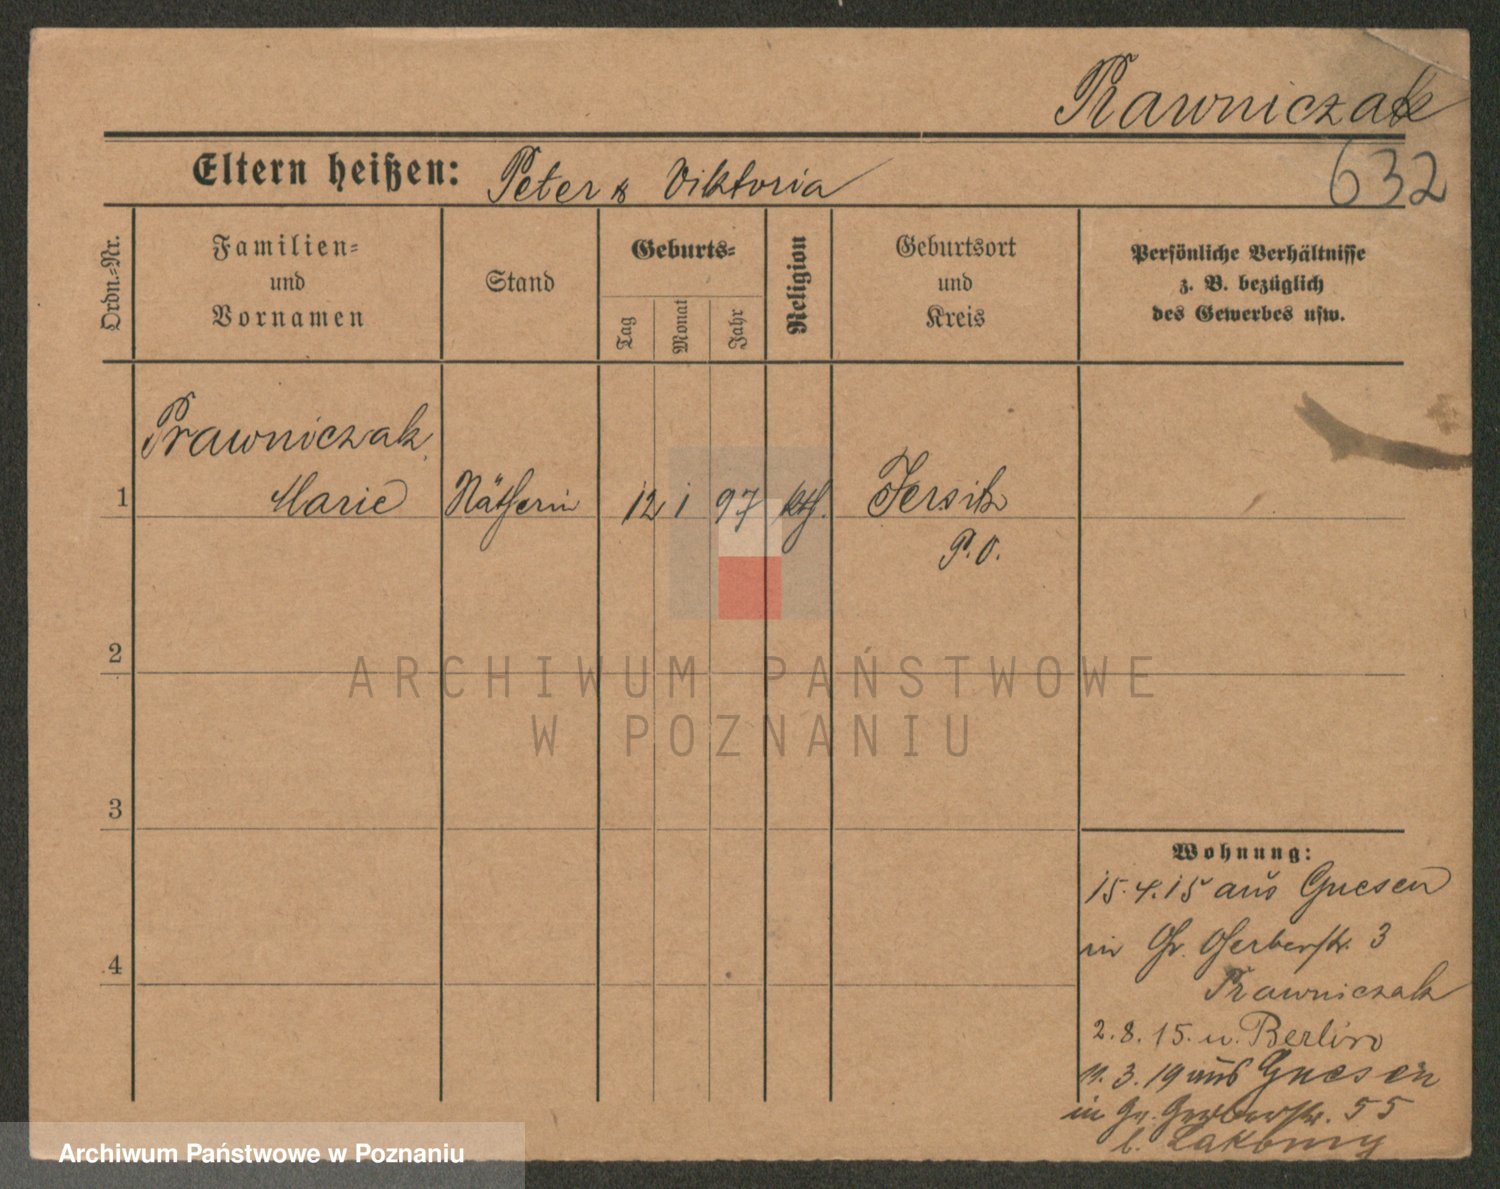 Prawniczak
632
Eltern heißen: Peter & Viktoria
Ordn.-Nr.
Familien-
und
Vornamen
Stand
Geburts-
Tag
Monat
Jahr
Religion
Geburtsort
und
Kreis
Persönliche Verhältnisse
z. B. bezüglich
des Gewerbes usw.
Prawniczak
1 Marie Nätherin 12 1 97 kth. Jersitz
P. O.
2
3
4
ARCHIWUM PAŃSTWOWE
W POZNANIU
Wohnung:
15.4.15 aus Gnesen
in Gr. Gerberstr. 3
Prawniczak
2.8.15. n. Berlin
11.3.19 aus Gnesen
in Gr. Gerberstr. 55
b.
Archiwum Państwowe w Poznaniu